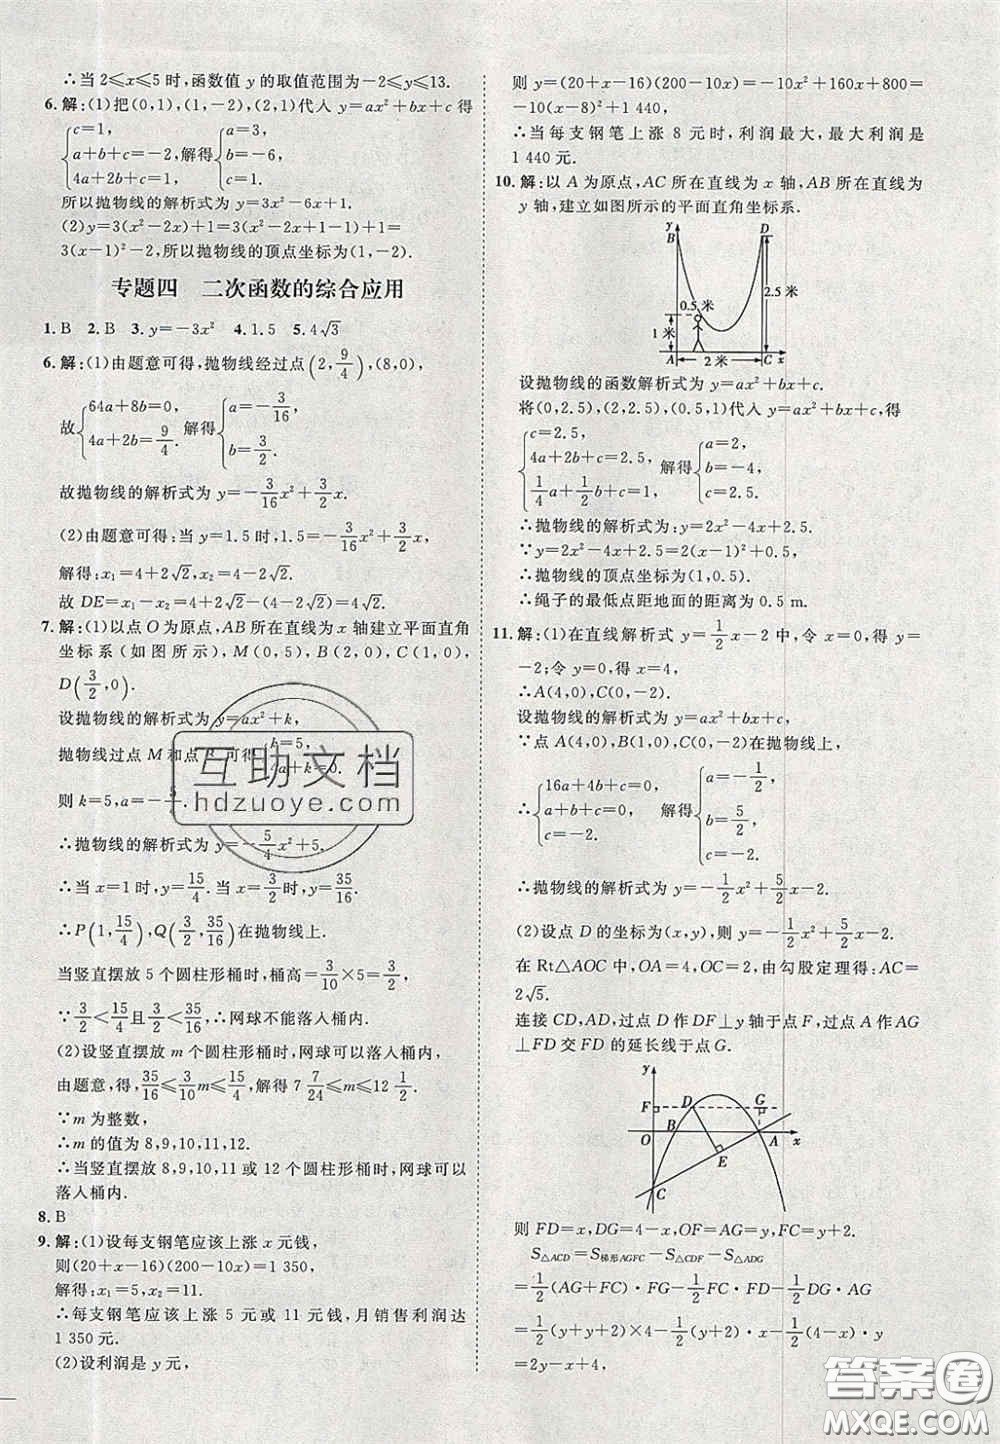 ∴当 2≤x≤5 时,函数值 y 的取值范围为-2≤y≤13.
6. 解:(1)把(0,1),(1,-2),(2,1)代入 y=ax²+bx+c得
{c=1, a+b+c=-2, 4a+2b+c=1. 解得{a=3, b=-6, c=1.
所以抛物线的解析式为 y=3x²-6x+1;
(2)y=3(x²-2x)+1=3(x²-2x+1-1)+1=
3(x-1)²-2,所以抛物线的顶点坐标为(1,-2).
专题四 二次函数的综合应用
1. B 2. B 3. y=-3x² 4. 1.5 5. 4√3
6. 解:(1)由题意可得,抛物线经过点(2,9/4),(8,0),
故{64a+8b=0, 4a+2b=9/4. 解得{a=-3/16, b=3/2.
故抛物线的解析式为 y=-3/16x²+3/2x.
(2)由题意可得:当 y=1.5 时,1.5=-3/16x²+3/2x,
解得:x₁=4+2√2,x₂=4-2√2.
故 DE=x₁-x₂=4+2√2-(4-2√2)=4√2.
7. 解:(1)以点 O 为原点,AB 所在直线为 x 轴建立平面直角
坐标系(如图所示),M(0,5),B(2,0),C(1,0),
D(3/2,0).
设抛物线的解析式为 y=ax²+k,
抛物线过点 M 和点 B,可得{k=5, 4a+k=0.
则 k=5,a=-5/4.
∴抛物线的解析式为 y=-5/4x²+5,
∴当 x=1 时,y=15/4. 当 x=3/2 时,y=35/16.
∴P(1,15/4),Q(3/2,35/16)在抛物线上.
当竖直摆放 5 个圆柱形桶时,桶高=3/10×5=3/2.
∵3/2<15/4 且 3/2<35/16,∴网球不能落入桶内.
(2)设竖直摆放 m 个圆柱形桶时,网球可以落入桶内,
由题意,得,35/16≤3/10m≤15/4,解得 7 7/24≤m≤12 1/2.
∵m 为整数,
∴m 的值为 8,9,10,11,12.
∴当竖直摆放 8,9,10,11 或 12 个圆柱形桶时,网球可以
落入桶内.
8. B
9. 解:(1)设每支钢笔应该上涨 x 元钱,
则(20+x-16)(200-10x)=1 350,
解得:x₁=5,x₂=11.
∴每支钢笔应该上涨 5 元或 11 元钱,月销售利润达
1 350 元.
(2)设利润是 y 元,
则 y=(20+x-16)(200-10x)=-10x²+160x+800=
-10(x-8)²+1 440,
∴当每支钢笔上涨 8 元时,利润最大,最大利润是
1 440 元.
10. 解:以 A 为原点,AC 所在直线为 x 轴,AB 所在直线为
y 轴,建立如图所示的平面直角坐标系.
y
B
D
0.5 米
2.5 米
1 米
A
2 米
C
x
设抛物线的函数解析式为 y=ax²+bx+c.
将(0,2.5),(2,2.5),(0.5,1)代入 y=ax²+bx+c,得
{c=2.5, 4a+2b+c=2.5, 1/4a+1/2b+c=1. 解得{a=2, b=-4, c=2.5.
∴抛物线的解析式为:y=2x²-4x+2.5.
∵y=2x²-4x+2.5=2(x-1)²+0.5,
∴抛物线的顶点坐标为(1,0.5).
∴绳子的最低点距地面的距离为 0.5 m.
11. 解:(1)在直线解析式 y=1/2x-2 中,令 x=0,得 y=
-2;令 y=0,得 x=4.
∴A(4,0),C(0,-2).
设抛物线的解析式为 y=ax²+bx+c,
∵点 A(4,0),B(1,0),C(0,-2)在抛物线上,
∴{16a+4b+c=0, a+b+c=0, c=-2. 解得{a=-1/2, b=5/2, c=-2.
∴抛物线的解析式为 y=-1/2x²+5/2x-2.
(2)设点 D 的坐标为(x,y),则 y=-1/2x²+5/2x-2.
在 Rt△AOC 中,OA=4,OC=2,由勾股定理得:AC=
2√5.
连接 CD,AD,过点 D 作 DF⊥y 轴于点 F,过点 A 作 AG
⊥FD 交 FD 的延长线于点 G.
y
F
D
G
O
B
A
x
E
C
则 FD=x,DG=4-x,OF=AG=y,FC=y+2.
S△ACD=S梯形AGFC-S△CDF-S△ADG
=1/2(AG+FC)·FG-1/2FC·FD-1/2DG·AG
=1/2(y+y+2)×4-1/2(y+2)·x-1/2(4-x)·y
=2y-x+4,
互助文档
hdzuoye.com
答案圈
MXQE.COM